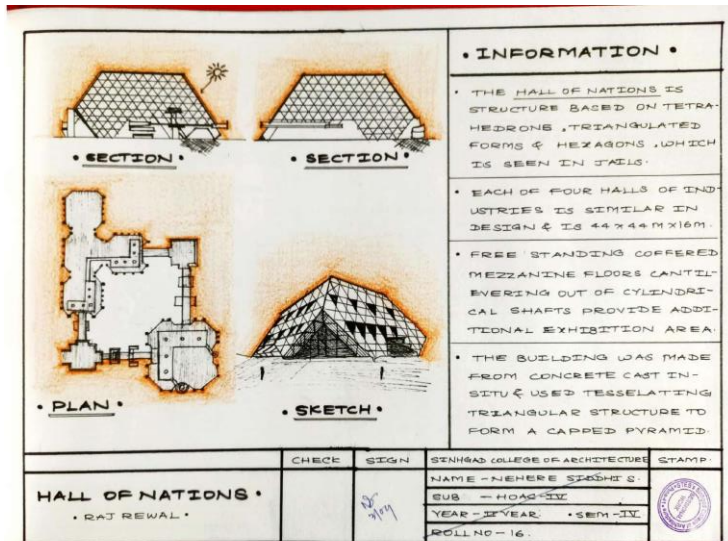 • INFORMATION •
• THE HALL OF NATIONS IS
STRUCTURE BASED ON TETRA-
HEDRONE, TRIANGULATED
FORMS & HEXAGONS, WHICH
IS SEEN IN JAILS.
• EACH OF FOUR HALLS OF IND-
USTRIES IS SIMILAR IN
DESIGN & IS 44 X 44 M X 16 M.
• FREE STANDING COFFERED
MEZZANINE FLOORS CANTIL-
EVERING OUT OF CYLINDRI-
CAL SHAFTS PROVIDE ADDI-
TIONAL EXHIBITION AREA.
• THE BUILDING WAS MADE
FROM CONCRETE CAST IN-
SITU & USED TESSELATING
TRIANGULAR STRUCTURE TO
FORM A CAPPED PYRAMID.
• SECTION •
• SECTION •
• PLAN •
• SKETCH •
HALL OF NATIONS •
• RAJ REWAL •
CHECK
SIGN
SINHGAD COLLEGE OF ARCHITECTURE
NAME - NEHERE SIDDHI S.
SUB - HOAC-IV
YEAR - II YEAR • SEM - IV
ROLL NO - 16.
STAMP